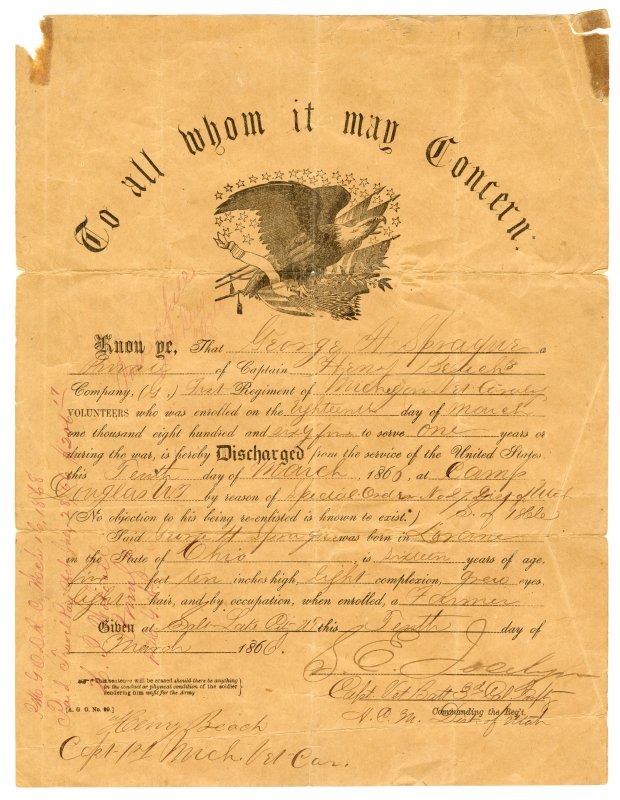 To all whom it may Concern:
Know ye, That George H Sprague a
Private of Captain Henry Beach's
Company, (G,) First Regiment of Michigan Vet Cavalry
VOLUNTEERS who was enrolled on the Eighteenth day of March
one thousand eight hundred and sixty five to serve one years or
during the war, is hereby Discharged from the service of the United States
this Tenth day of March, 1866, at Camp
Douglas UT by reason of Special Order No 27 Dist of Utah
(No objection to his being re-enlisted is known to exist.*) S. of 1866
Said George H Sprague was born in Loraine
in the State of Ohio, is sixteen years of age,
five feet ten inches high, Light complexion, Grey eyes,
Light hair, and by occupation, when enrolled, a Farmer
Given at Salt Lake City UT this Tenth day of
March 1866.
S. E. Jocelyn
*This sentence will be erased should there be anything
in the conduct or physical condition of the soldier
rendering him unfit for the Army
Capt Vet Batt 3d Cal Inft
[A. G. O. No. 99.]
Commanding the Reg't
A. C. M. Dist of Utah
Henry Beach
Capt 1st Mich Vet Cav.